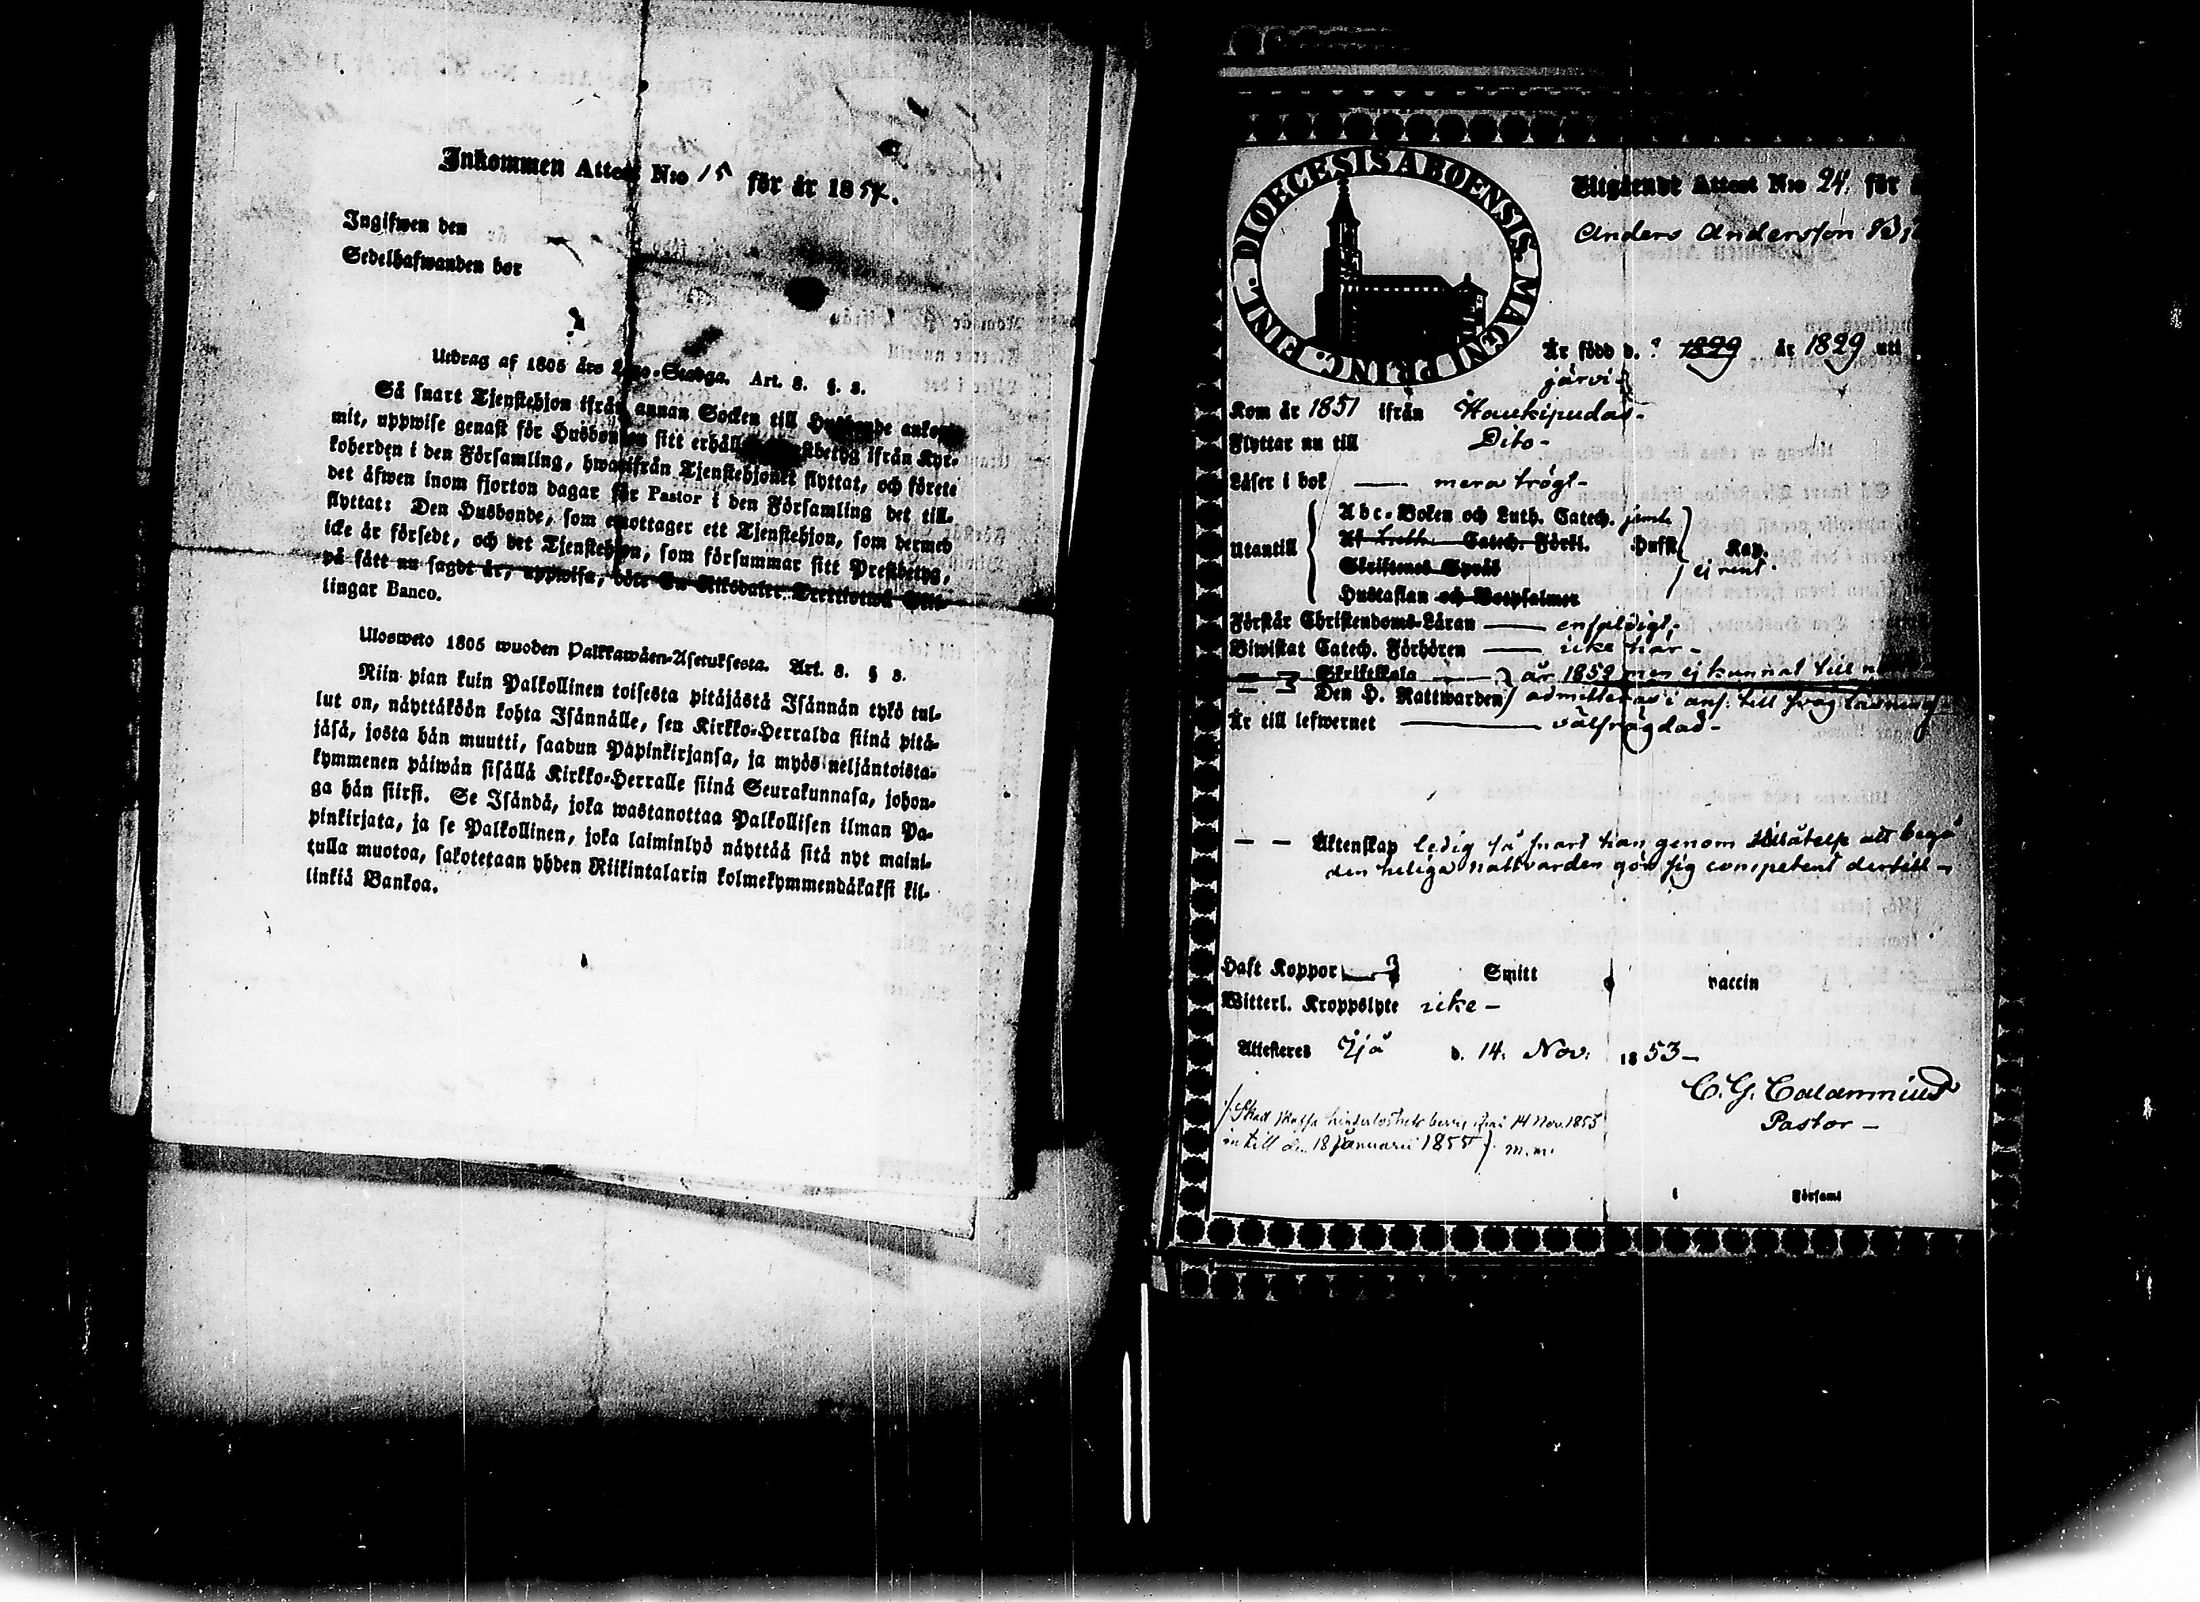 Inkommen Attest N:o 15 för år 1854.
Ingifwen den
Sedelhafwanden bor
Utdrag af 1805 års Lego-Stadga. Art. 8. §. 8.
Så snart Tjenstehjon ifrån annan Socken till Husbonde ankom-
mit, uppwise genast för Husbonden sitt erhållna Prestbetyg ifrån Kyr-
koherden i den Församling, hwarifrån Tjenstehjonet flyttat, och förete
det äfwen inom fjorton dagar för Pastor i den Församling det till-
flyttat: Den Husbonde, som emottager ett Tjenstehjon, som dermed
icke är försedt, och det Tjenstehjon, som försummar sitt Prestbetyg,
på sätt nu sagdt är, uppwisa, böte En Riksdaler Trettiotwå Skil-
lingar Banco.
Ulosweto 1805 wuoden Palkkawäen-Asetuksesta. Art. 8. § 8.
Niin pian kuin Palkollinen toisesta pitäjästä Isännän tykö tul-
lut on, näyttäköön kohta Isännälle, sen Kirkko-Herralda siinä pitä-
jäsä, josta hän muutti, saadun Papinkirjansa, ja myös neljäntoista-
kymmenen päiwän sisällä Kirkko-Herralle siinä Seurakunnasa, johon-
ga hän siirsi. Se Isändä, joka wastanottaa Palkollisen ilman Pa-
pinkirjata, ja se Palkollinen, joka laiminlyö näyttää sitä nyt maini-
tulla muotoa, sakotetaan yhden Riikintalarin kolmekymmendäkaksi kil-
linkiä Bankoa.
DIOECESIS ABOENSIS. MAGNI PRINC. FINL.
Utgående Attest N:o 24. för
Anders Andersson
Är född d. ? 1829 år 1829 uti
järvi
Kom år 1851 ifrån Haukipudas-
Flyttar nu till Dito-
Läser i bok — mera trögt-
Utantill
Abc-Boken och Luth. Catech. jemte
Af Luth. Catech. Förkl. Husft. Kap.
Skriftenes Språk ej rent
Hustaflan och Botpsalmer
Förstår Christendoms-Läran — enfaldigt-
Biwistat Catech. Förhören — icke här-
Skriftskola — år 1852 men ej kunnat till
Den H. Nattwarden admitteras i anf. till svag läsning
Är till lefwernet — välfrägdad-
— — Äktenskap ledig så snart han genom tillåtelse att begå
den heliga nattvarden gör sig competent dertill-
Haft Koppor Smitt vaccin
Witterl. Kroppslyte icke-
Attesteras Ijå d. 14. Nov. 1853-
C. G. Calamnius
Pastor-
14 Nov. 1853
intill den 18 Januarii 1855 m.m.
i Församl